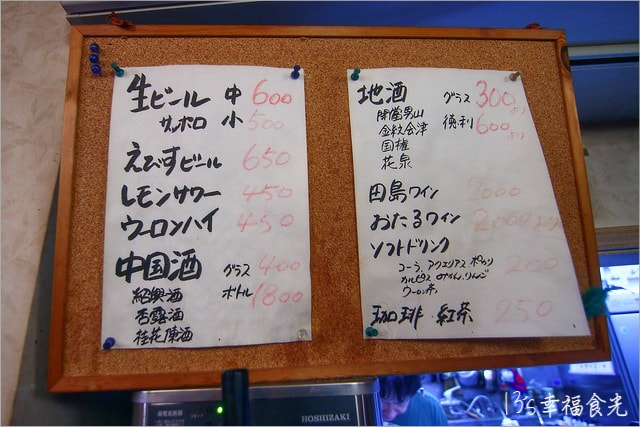 生ビール 中 600
サッポロ 小 500
えびすビール 650
レモンサワー 450
ウーロンハイ 450
中国酒 グラス 400
紹興酒 ボトル 1800
香露酒
桂花陳酒
地酒 グラス 300より
開當男山 徳利 600より
金紋会津
国権
花泉
田島ワイン 2000
おたるワイン 2000より
ソフトドリンク 200
コーラ アクエリアス ポカリ
カルピス みかん、りんご
ウーロン茶
珈琲 紅茶 250
HOSHIZAKI
13's幸福食光